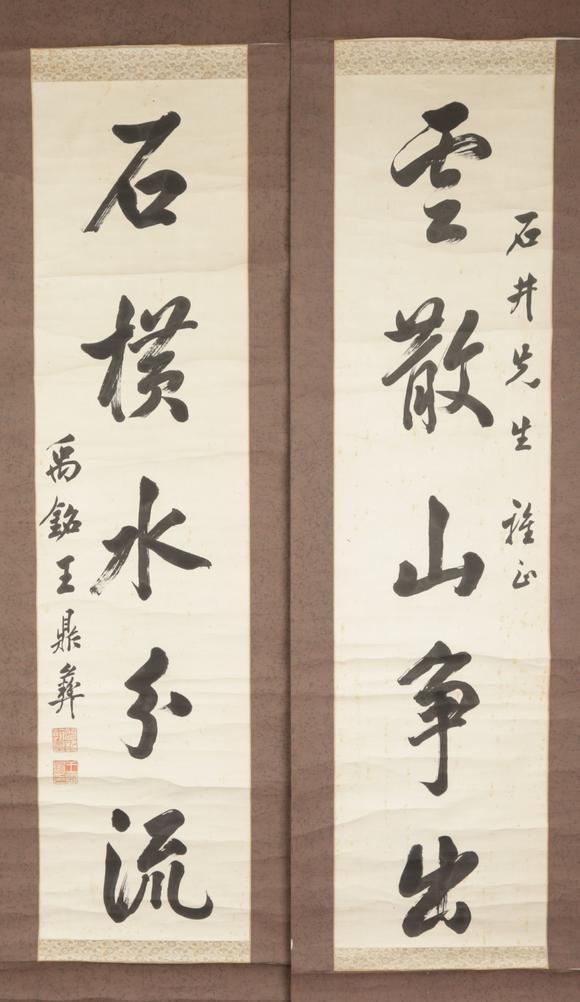 石井先生 雅正
雲散山争出
石横水分流
禹銘王鼎彝